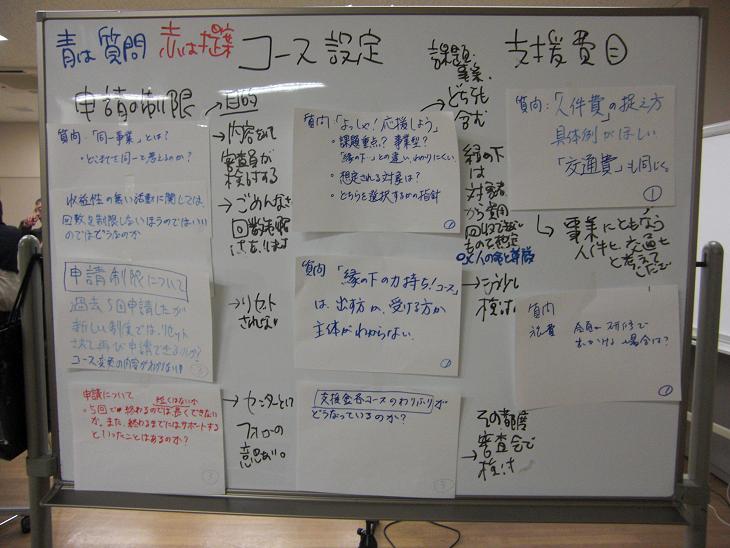 青は質問 赤は提案
コース設定
支援費目
申請の制限
質問：「同一事業」とは？
・どこまでを同一と考えるのか？
収益性の無い活動に関しては
回数を制限しないほうのではいい
のではどうなのか
申請制限について
過去5回申請したが
新しい制度では、リセット
されて再び申請できるのか？
コース変更の内容がわからない!!
申請について
短くはないか
・5回で終わるのでは長くできない
か。また、終わるまでにはサポートする
といったことはあるのか？
→目的
→内容を見て
審査員が
検討する
→ごめんなさい
回数制限
はあります
→リセット
されない
→センターとして
フォローの
意思あり。
質問「よっしゃ！応援しよう」
・課題重点？ 事業型？
「縁の下」との違い、わかりにくい。
・想定される対象は？
・どちらを選択するかの指針
質問「縁の下の力持ち！コース」
は、出す方か、受ける方か
主体がわからない。
支援金各コースのわりふりが
どうなっているのか？
→課題・
事業、
どちらも
含む
縁の下
は
対象者
から費用
もので想定
→もう少し
検討
→その都度
審査会で
検討
質問：「人件費」の捉え方
具体例がほしい
「交通費」も同じく。
①
↳事業にともなう
人件と、交通を
と考えて
質問
旅費
会員の研修で
出かける場合は？